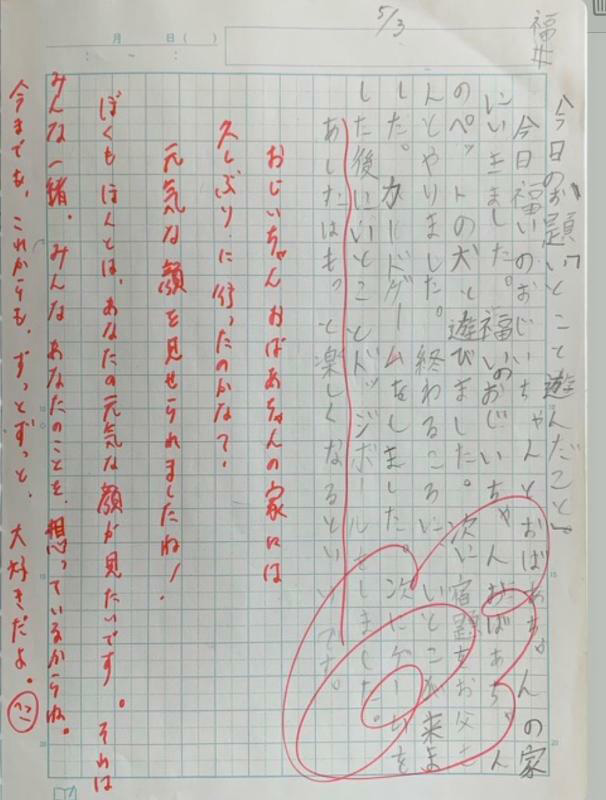 福井
5/3
月　日(　)
:　〜　:
<今日のお題『いとこと遊んだこと』
今日福いのおじいちゃんとおばあちゃんの家
にいきました。福いのおじいちゃんおばあちゃん
のペットの犬と遊びました。次に宿題をお父さ
んとやりました。終わるころに、いとこが来ま
した。カードゲームをしました。次にゲームを
した後にいとことドッジボールをしました。
あしたはもっと楽しくなるといいです。
おじいちゃんおばあちゃんの家には
久しぶりに行ったのかな?
元気な顔を見せられましたね!
ぼくもほんとは、あなたの元気な顔が見たいです。それは
みんな一緒。みんなあなたのことを想っているからね。
今までも、これからも、ずっとずっと、大好きだよ。